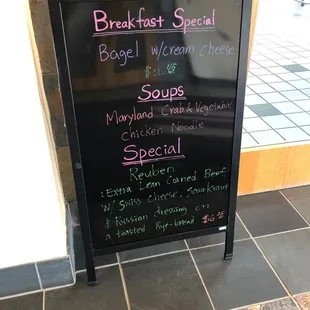 Breakfast Special
Bagel w/cream cheese
Soups
Maryland Crab & Vegetable
Chicken Noodle
Special
Reuben
: Extra Lean Corned Beef
w/ Swiss cheese, Sauerkraut
& Russian dressing on
a toasted Rye-bread $6.35